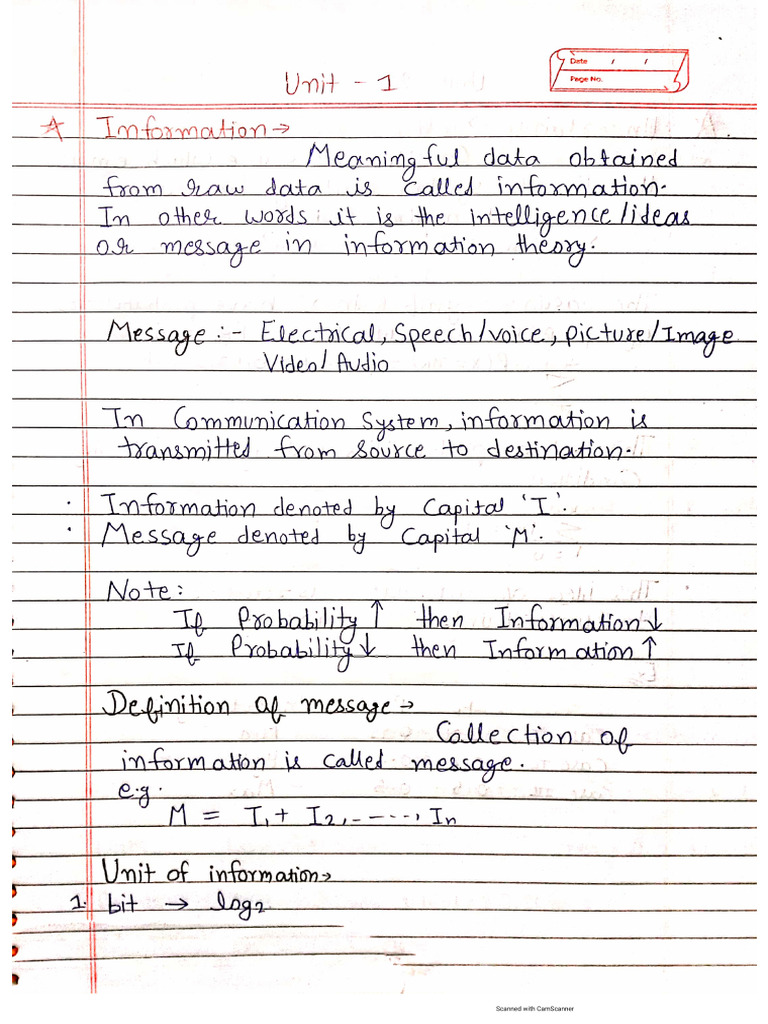 Date / /
Page No.
Unit - 1
* Information →
Meaningful data obtained
from raw data is called information.
In other words it is the intelligence/ideas
or message in information theory.
Message :- Electrical, Speech/voice, picture/Image
Video/Audio
In Communication System, information is
transmitted from source to destination.
· Information denoted by Capital 'I'.
· Message denoted by Capital 'M'.
Note:
If Probability ↑ then Information ↓
If Probability ↓ then Information ↑
Definition of message →
Collection of
information is called message.
e.g.
M = I₁ + I₂, - - - -, In
Unit of information →
1. bit → log₂
Scanned with CamScanner